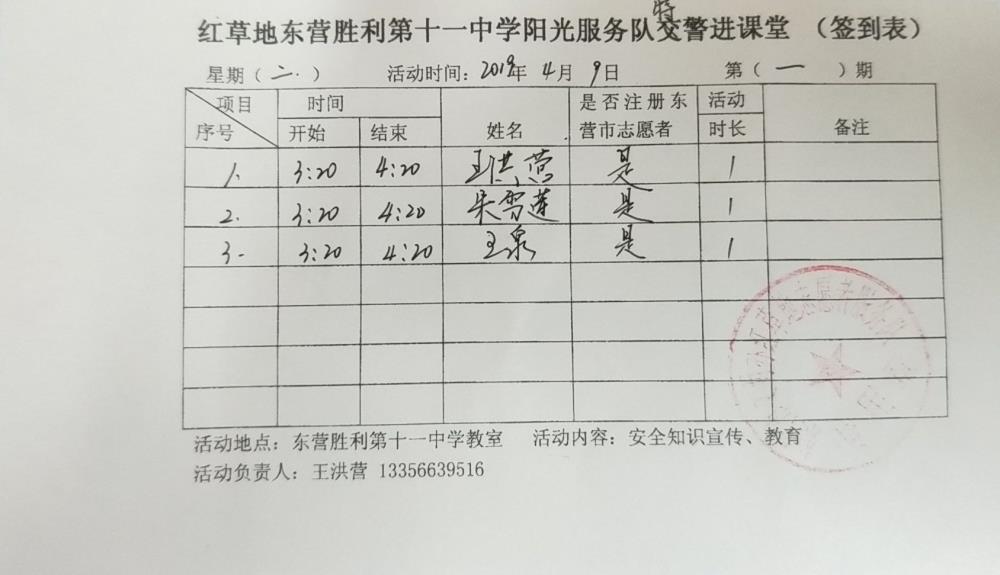 红草地东营胜利第十一中学阳光服务队特交警进课堂 （签到表）
星期（二.） 活动时间：2019年 4月 9日 第（一）期
项目 时间 姓名 是否注册东营市志愿者 活动时长 备注
序号 开始 结束
1. 3:20 4:20 王洪营 是 1
2. 3:20 4:20 朱雪莲 是 1
3. 3:20 4:20 王泉 是 1
活动地点：东营胜利第十一中学教室 活动内容：安全知识宣传、教育
活动负责人：王洪营 13356639516